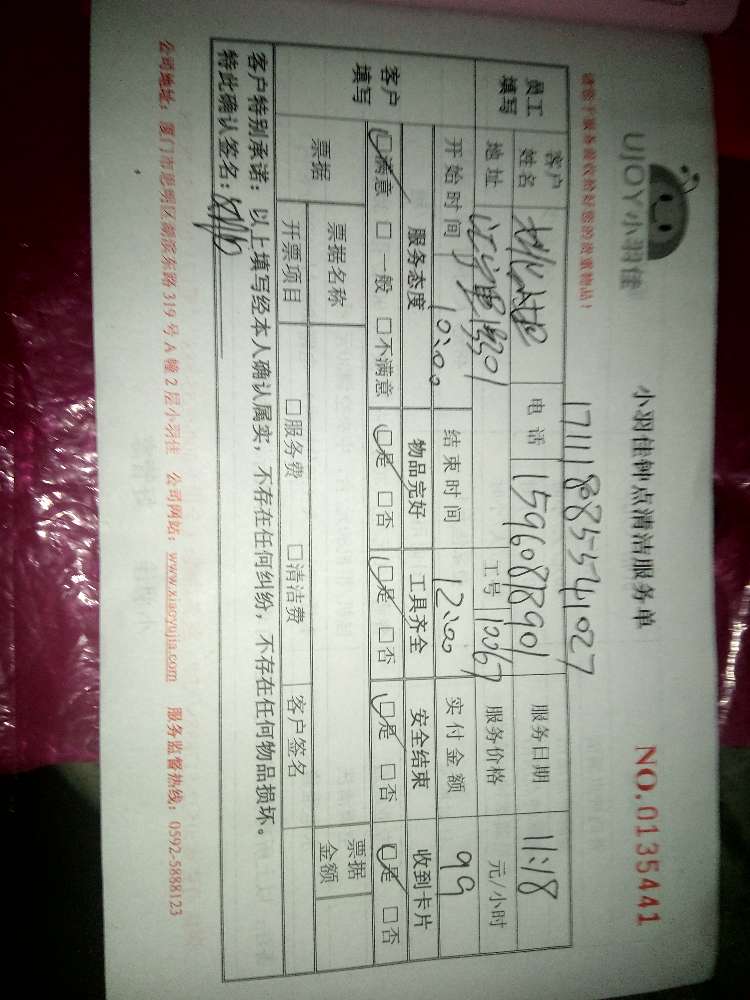 UJOY小羽佳
小羽佳钟点清洁服务单
NO.0135441
171118085541027
员工填写 客户姓名 电话 15960818901 服务日期 11:18
地址 1330 工号 10067 服务价格 元/小时
开始时间 10:00 结束时间 12:00 实付金额 99
客户填写 服务态度 物品完好 工具齐全 安全结束 收到卡片
☑满意 □一般 □不满意 ☑是 □否 ☑是 □否 ☑是 □否 ☑是 □否
票据 票据名称 票据金额
开票项目 □服务费 □清洁费 客户签名
客户特别承诺：以上填写经本人确认属实，不存在任何纠纷，不存在任何物品损坏。
特此确认签名：
公司地址：厦门市思明区湖滨东路319号A幢2层小羽佳 公司网站：www.xiaoyujia.com 服务监督热线：0592-5888123